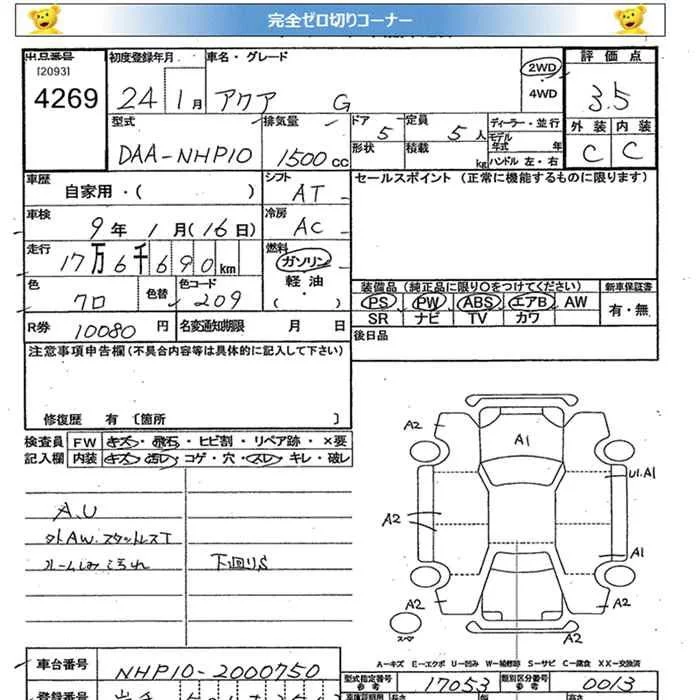 完全ゼロ切りコーナー
出品番号 初度登録年月 車名・グレード 評価点
[2093]
4269 24 1月 アクア G 2WD・4WD 3.5
型式 排気量 ドア 定員 ディーラー・並行 外装 内装
DAA-NHP10 1500cc 5 5人 モデル年式 年 C C
形状 積載 kg ハンドル 左・右
車歴 シフト セールスポイント (正常に機能するものに限ります)
自家用・( ) AT
車検 冷房
9年1月(16日) AC
走行 燃料
17万6千690km ガソリン・軽油・( )
色 色替 色コード 装備品 (純正品に限り○をつけてください) 新車保証書
クロ 209 PS PW ABS エアB AW 有・無
SR ナビ TV カワ
R券 10080円 名変通知期限 月 日 後日品
注意事項申告欄(不具合内容等は具体的に記入して下さい)
修復歴 有 [箇所 ]
検査員記入欄 FW キズ・飛石・ヒビ割・リペア跡・×要
内装 キズ・汚レ・コゲ・穴・スレ・キレ・破レ
A.U
外AW.スタットレスT
ルームしみこられ 下回りS
A2
A1
U1.A1
A2
A1
A2 A2
スペ A2
A-キズ E-エクボ U-凹み W-補修跡 S-サビ C-腐食 XX-交換済
車台番号 NHP10-2000750 型式指定番号 参考 17053 類別区分番号 参考 0013
登録番号 岩手 長さ 幅 高さ